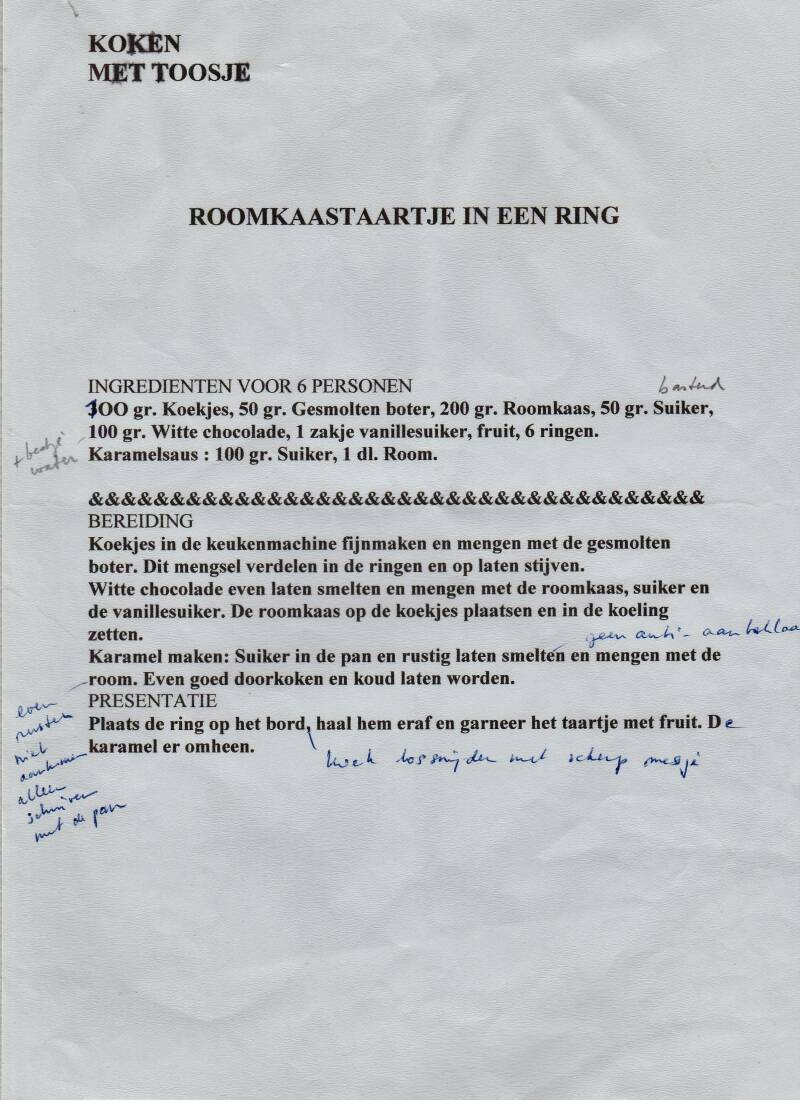 KOKEN
MET TOOSJE
ROOMKAASTAARTJE IN EEN RING
INGREDIENTEN VOOR 6 PERSONEN
basterd
OO gr. Koekjes, 50 gr. Gesmolten boter, 200 gr. Roomkaas, 50 gr. Suiker,
100 gr. Witte chocolade, 1 zakje vanillesuiker, fruit, 6 ringen.
+ beetje
water
Karamelsaus : 100 gr. Suiker, 1 dl. Room.
&&&&&&&&&&&&&&&&&&&&&&&&&&&&&&&&&&&&&&
BEREIDING
Koekjes in de keukenmachine fijnmaken en mengen met de gesmolten
boter. Dit mengsel verdelen in de ringen en op laten stijven.
Witte chocolade even laten smelten en mengen met de roomkaas, suiker en
de vanillesuiker. De roomkaas op de koekjes plaatsen en in de koeling
zetten.
geen anti-aanbaklaa
Karamel maken: Suiker in de pan en rustig laten smelten en mengen met de
room. Even goed doorkoken en koud laten worden.
even
rusten
niet
aankomen
alleen
schuiven
met de pan
PRESENTATIE
Plaats de ring op het bord, haal hem eraf en garneer het taartje met fruit. De
karamel er omheen.
koek lossnijden met scherp mesje